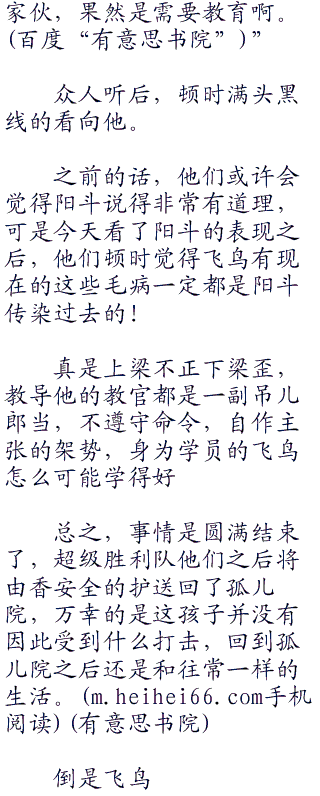 家伙，果然是需要教育啊。
(百度“有意思书院”)”
众人听后，顿时满头黑
线的看向他。
之前的话，他们或许会
觉得阳斗说得非常有道理，
可是今天看了阳斗的表现之
后，他们顿时觉得飞鸟有现
在的这些毛病一定都是阳斗
传染过去的！
真是上梁不正下梁歪，
教导他的教官都是一副吊儿
郎当，不遵守命令，自作主
张的架势，身为学员的飞鸟
怎么可能学得好
总之，事情是圆满结束
了，超级胜利队他们之后将
由香安全的护送回了孤儿
院，万幸的是这孩子并没有
因此受到什么打击，回到孤
儿院之后还是和往常一样的
生活。(m.heihei66.com手机
阅读)(有意思书院)
倒是飞鸟